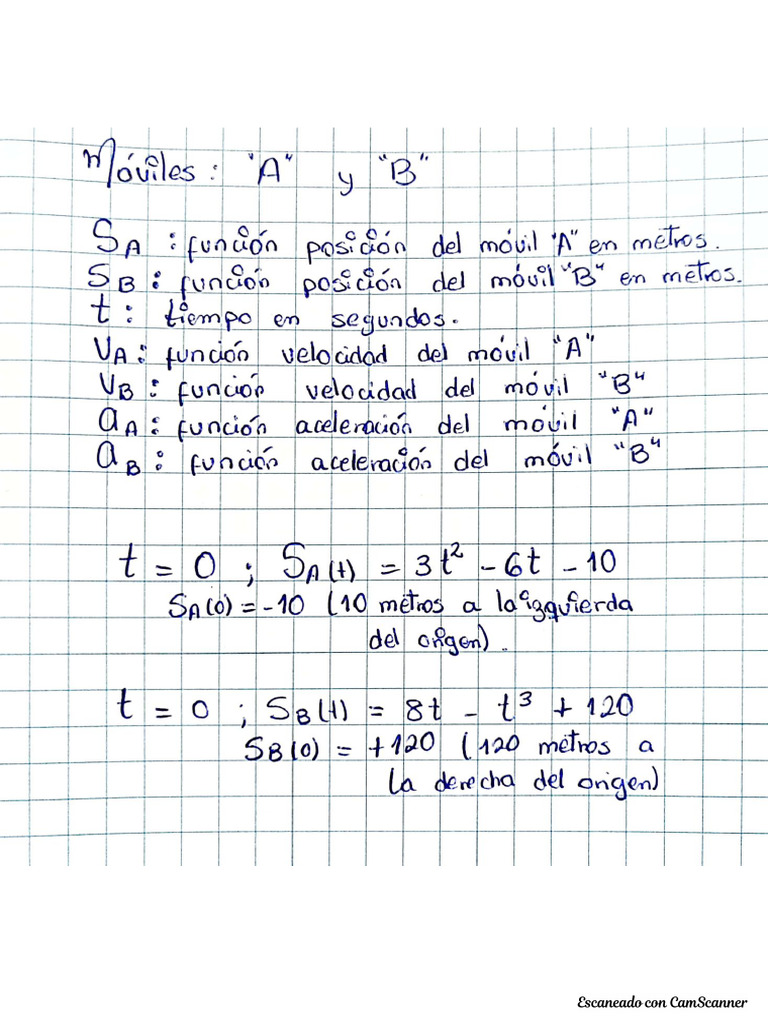 Móviles: "A" y "B"
SA : función posición del móvil "A" en metros.
SB : función posición del móvil "B" en metros.
t : tiempo en segundos.
VA : función velocidad del móvil "A"
VB : función velocidad del móvil "B"
aA : función aceleración del móvil "A"
aB : función aceleración del móvil "B"
t = 0 ; SA(t) = 3t² - 6t - 10
SA(0) = -10 (10 metros a la izquierda
del origen).
t = 0 ; SB(t) = 8t - t³ + 120
SB(0) = +120 (120 metros a
la derecha del origen)
Escaneado con CamScanner